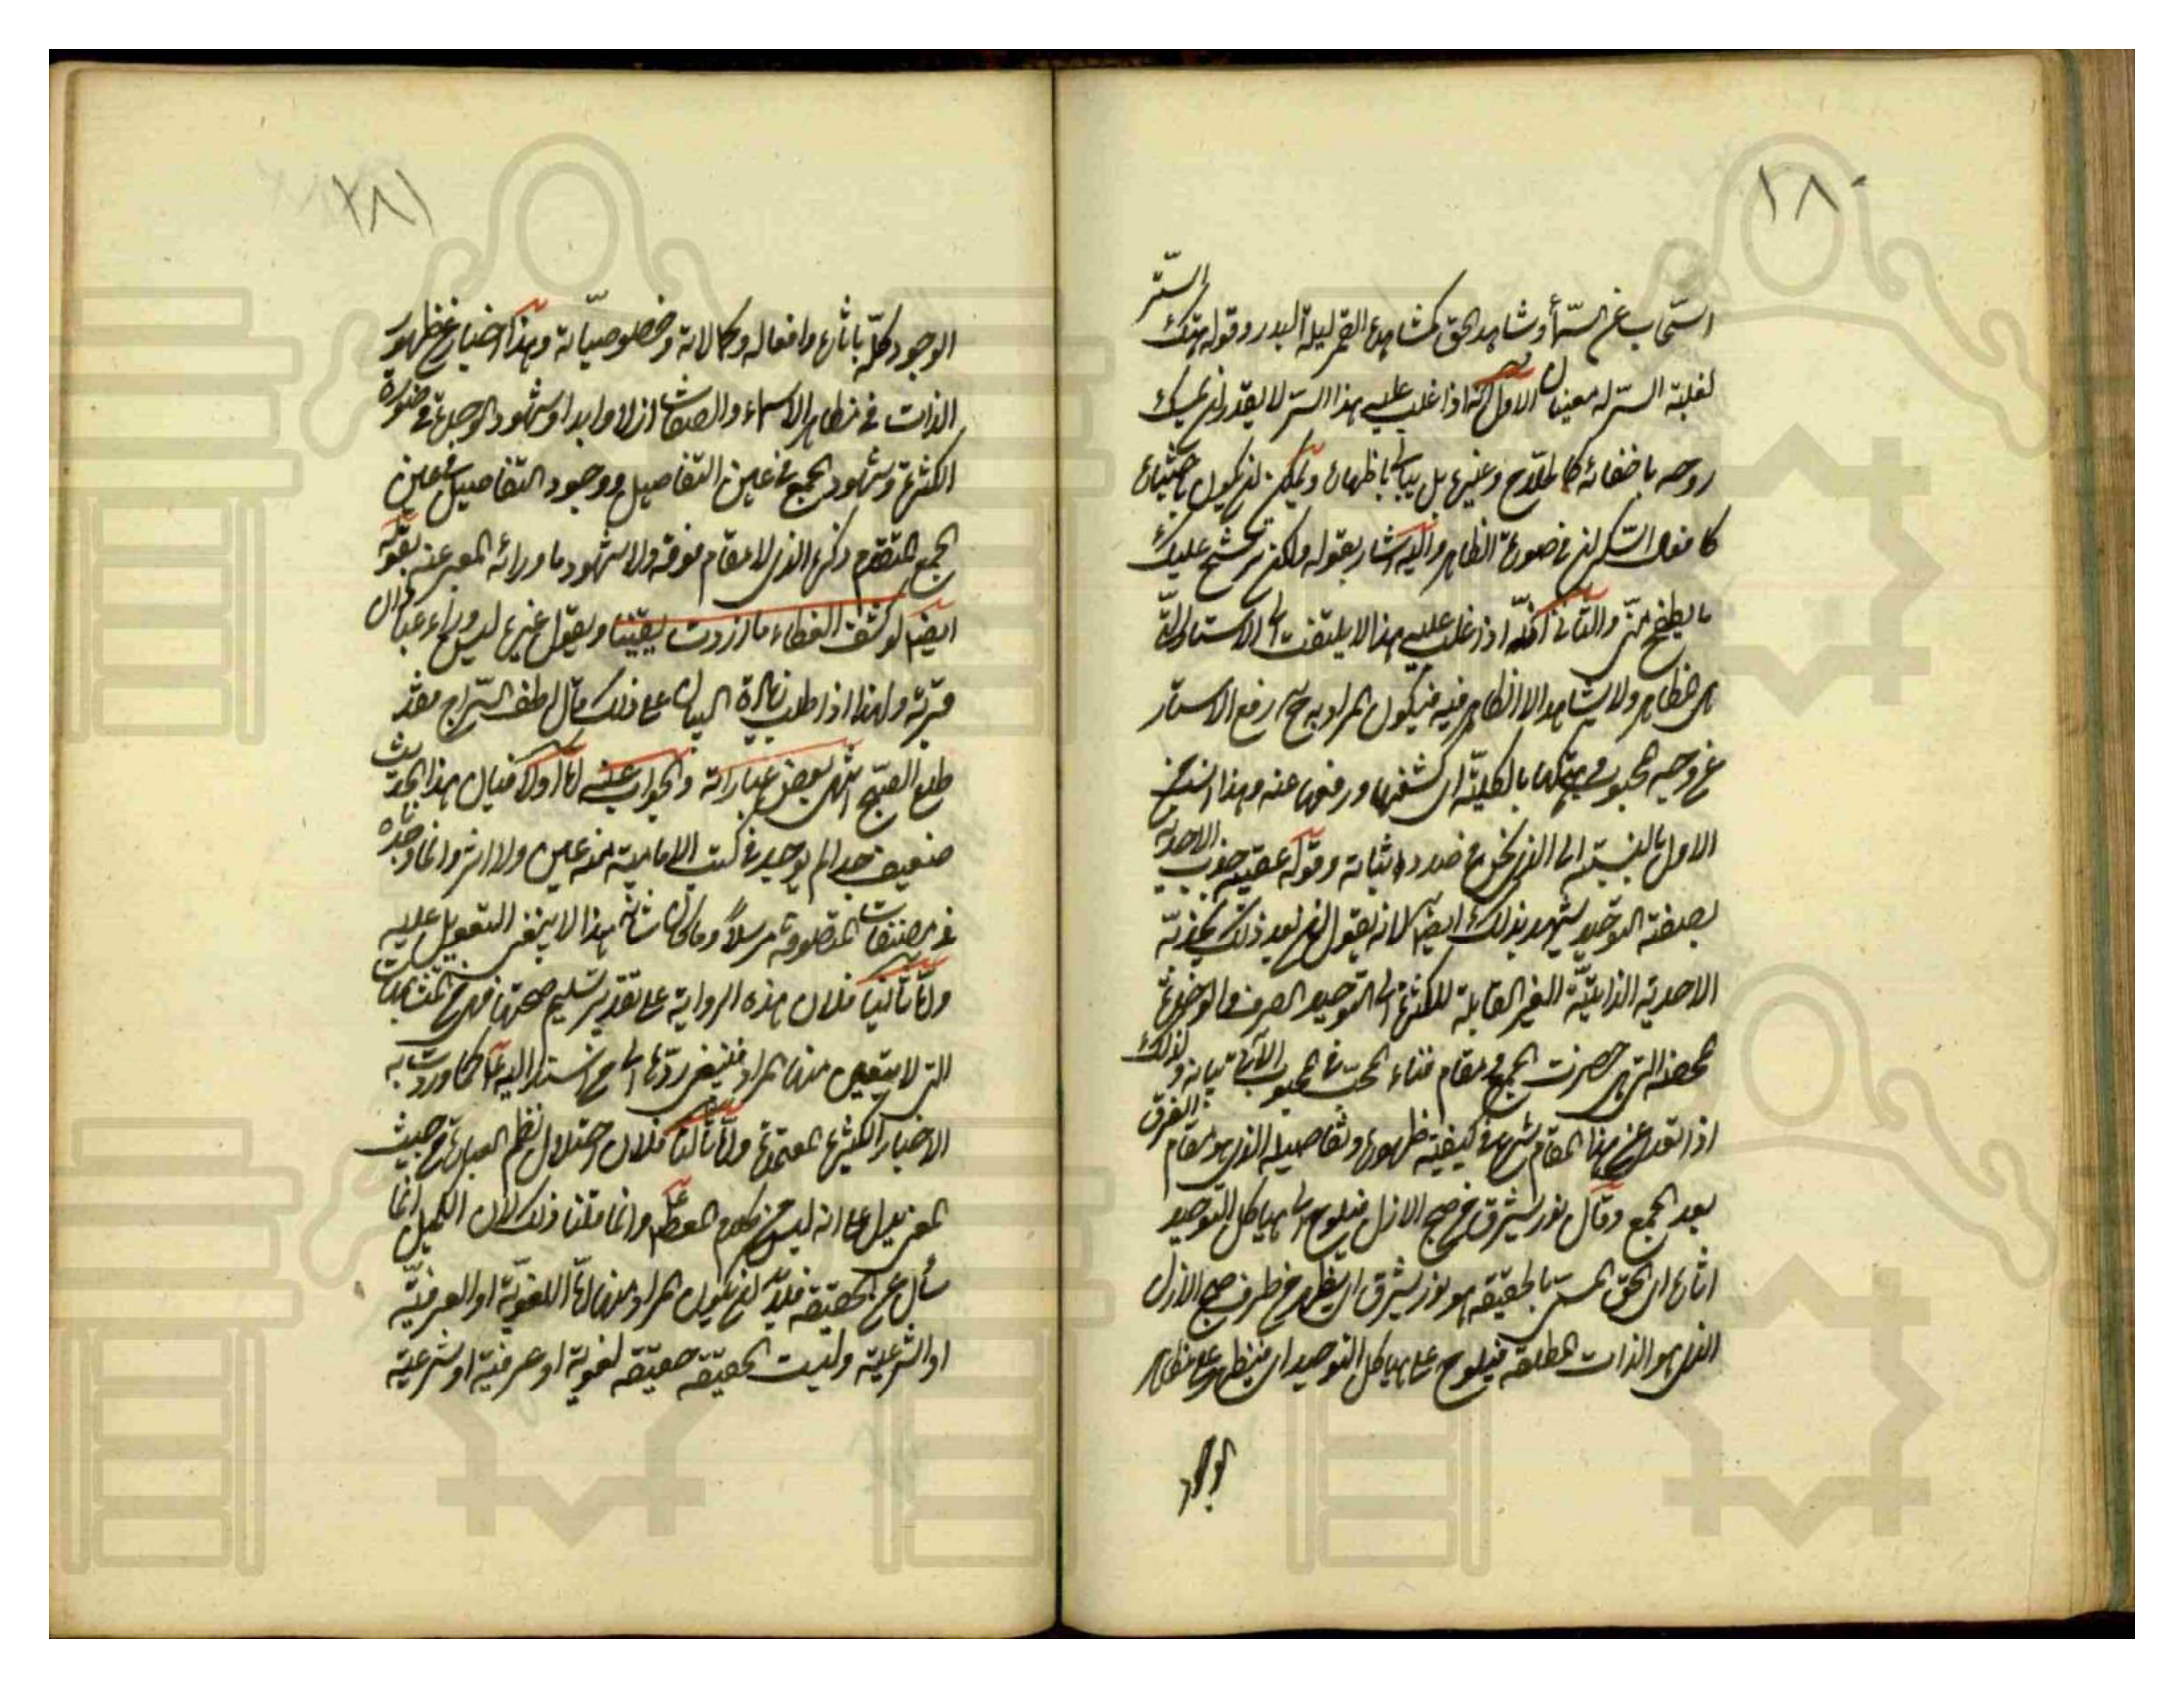 ١٨٠
السحاب عن السماء وشاهد الحق كمشاهدة القمر ليلة البدر وقوله هتك الستر
لغلبة السر له معنيان الاول انه اذا غلب عليه هذا السر لا يقدر ان يمسك
روحه باخفائه كالحلاج وغيره بل يبالي باظهاره ويمكن ان يكون باختياره
كافعال السكران في صورة الظاهر واليه اشار بقوله ولكن يرشح عليك
ما يطفح مني والثاني انه اذا غلب عليه هذا لا يلتفت الى الاستار التي
هي المظاهر ولا يشاهد الا الظاهر فيه فيكون المراد به ح رفع الاستار
عن وجه المحبوب وهتكها بالكلية اي كشفها ورفعها عنه وهذا انسب من
الاول بالنسبة الى الذي نحن في صدد اثباته وقوله عقيبه جذب الاحدية
بصفة التوحيد يشهد بذلك ايضا لانه يقول ان بعد ذلك يجذبه
الاحدية الذاتية الغير القابلة للكثرة الى التوحيد الصرف والوحدة
المحضة التي هي حضرت الجمع ومقام فناء المحب في المحبوب الآتي بيانه ولذلك
اذا تعدى عن هذا المقام شرع في كيفية ظهوره وتفاصيله الذي هو مقام الفرق
بعد الجمع وقال نور يشرق من صبح الازل فيلوح على هياكل التوحيد
اثاره اي الحق المسمى بالحقيقة هو نور يشرق اي يظهر من طرف صبح الازل
الذي هو الذات المطلقة فيلوح على هياكل التوحيد اي فيظهر على مظاهر
الوجود
١٨١
الوجود كله باثاره وافعاله وكمالاته وخصوصياته وهذا اخبار عن ظهور
الذات في مظاهر الاسماء والصفات ازلا وابدا وشهود الوحدة في صورة
الكثرة وشهود الجمع في عين التفاصيل ووجود التفاصيل في عين
الجمع المتقدم ذكره الذي لا مقام فوقه ولا شهود ما ورائه المعبر عنه بقوله
ايضا لو كشف الغطاء ما ازددت يقينا وبقول غيره ليس وراء عبادان
قرية ولهذا اذا طلب زيادة البيان على ذلك قال اطف السراج فقد
طلع الصبح انتهى بعض عباراته والجواب عنه اما اولا فبان هذا الحديث
ضعيف جدا لم يوجد في كتب الامامية منه عين ولا اثر وانما وجدناه
في مصنفات المتصوفة مرسلا وما كان شانه هذا لا ينبغي التعويل عليه
واما ثانيا فلان هذه الرواية على تقدير تسليم صحتها فهي من المتشابهات
التي لا يتعين منها المراد فينبغي ردها الى من اسند اليه كما وردت به
الاخبار الكثيرة المعتمدة واما ثالثا فلان اختلال نظم العبارة من حيث
المعنى يدل على انه ليس من كلام المعصوم وانما قلنا ذلك لان الكميل انما
سأل عن الحقيقة فلابد ان يكون المراد منها اما اللغوية او العرفية
او الشرعية وليست الحقيقة حقيقة لغوية او عرفية او شرعية